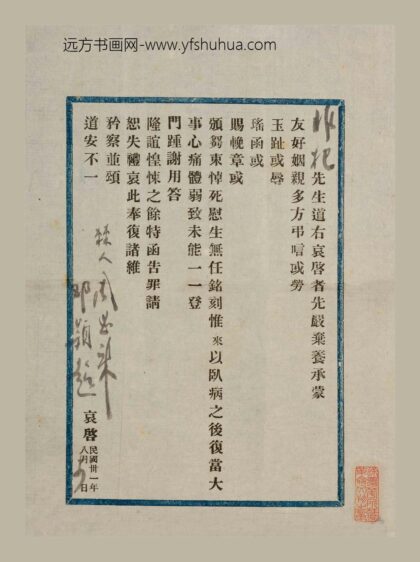 远方书画网-www.yfshuhua.com
先生道右哀啓者先嚴棄養承蒙
友好姻親多方弔唁或勞
玉趾或辱
瑤函或
賜輓章或
頒芻束悼死慰生無任銘刻惟來以臥病之後復當大
事心痛體弱致未能一一登
門踵謝用答
隆誼惶悚之餘特函告罪請
恕失禮哀此奉復諸維
矜察並頌
道安不一
棘人周恩來
鄧穎超
哀啓
民國卅一年
八月 日